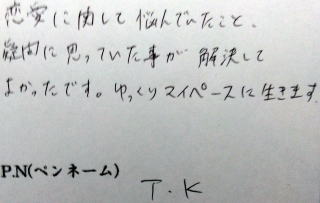 恋愛に関して悩んでいたこと、
疑問に思っていた事が 解決して
よかったです。ゆっくりマイペースに生きます
P.N(ペンネーム)
T.K